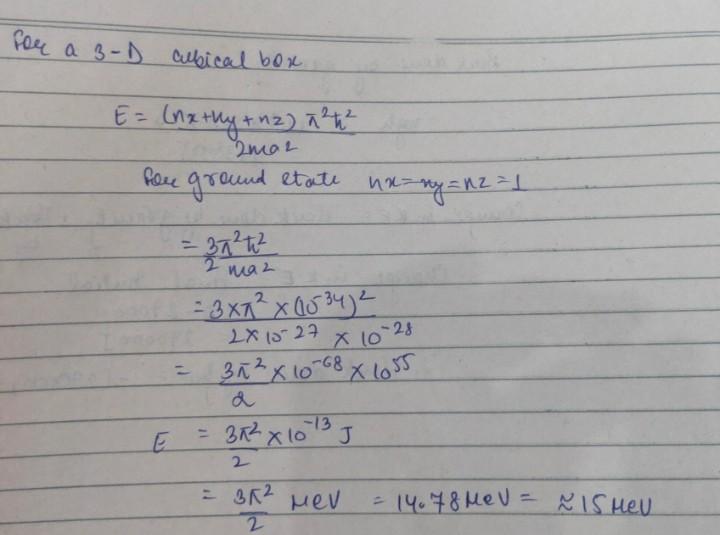 For a 3-D cubical box
E = (nx+ny+nz) π²ħ² / 2ma²
For ground state nx=ny=nz=1
= 3π²ħ² / 2 ma²
= 3×π²×(10-34)² / 2×10-27 × 10-28
= 3π² × 10-68 × 10^55 / 2
E = 3π² × 10-13 J / 2
= 3π² / 2 MeV = 14.78 MeV = ≈ 15 MeV